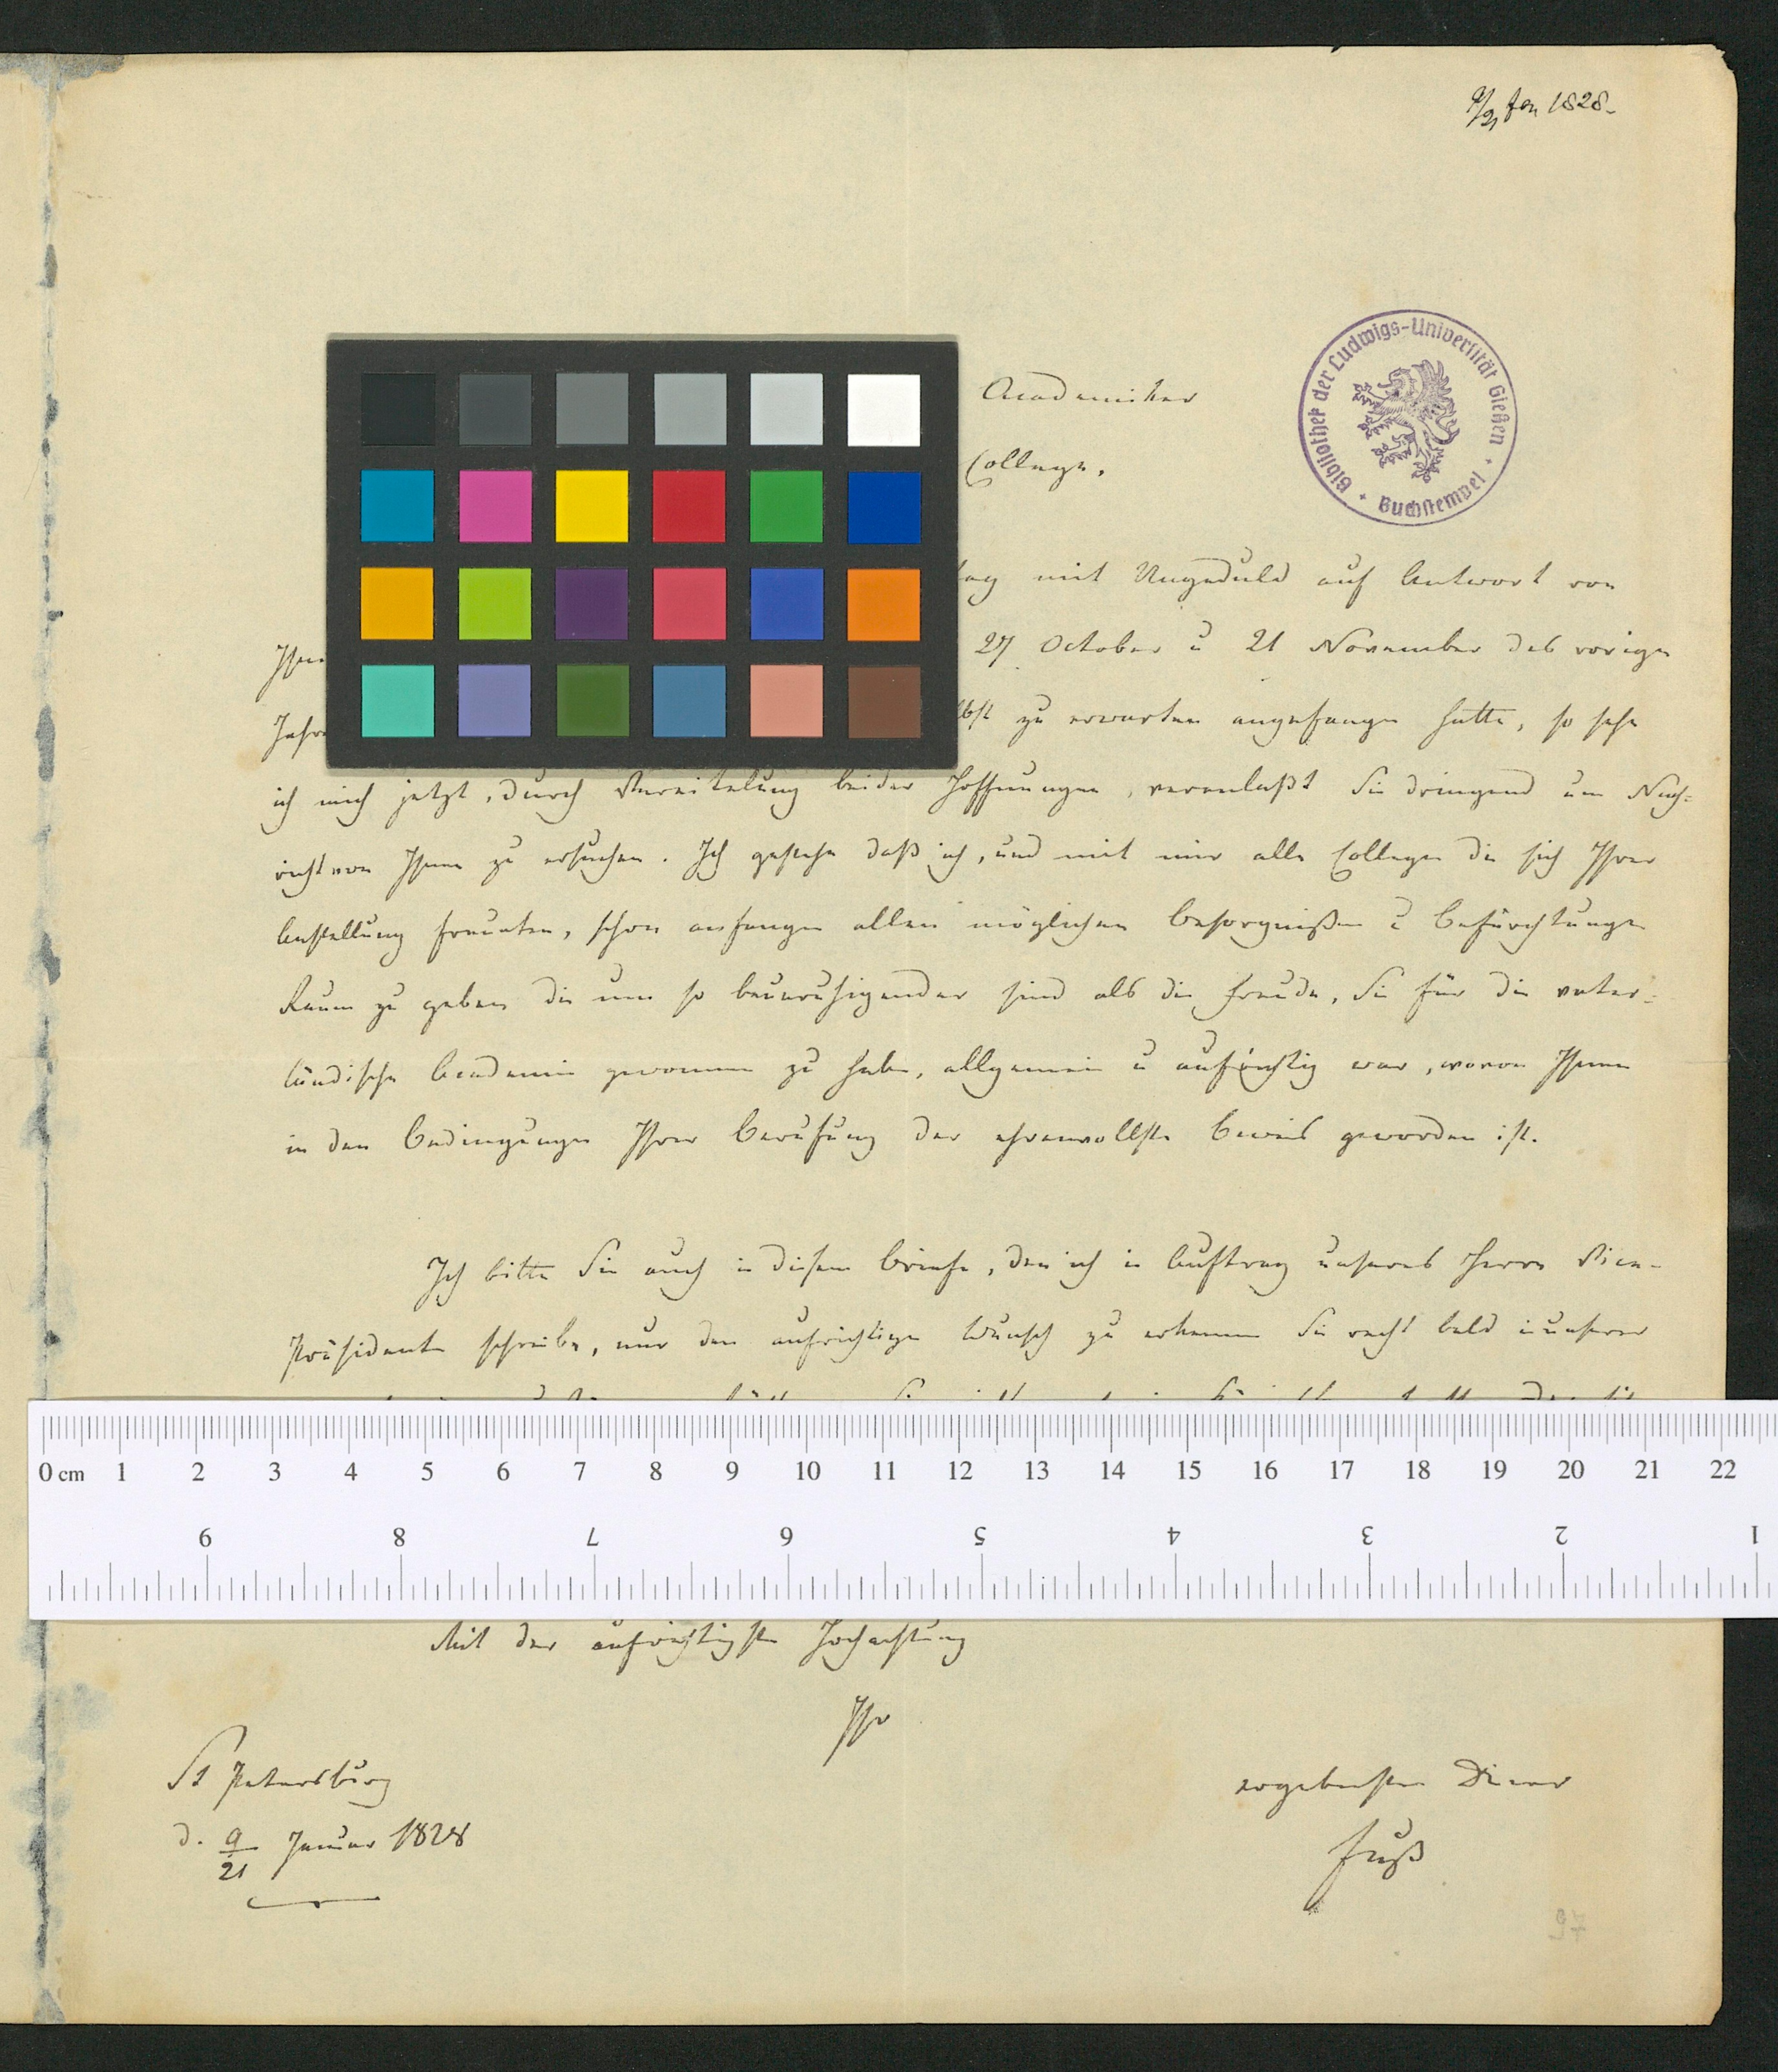 9/21 Jan 1828.
Bibliothek der Ludwigs-Universität Gießen
Buchstempel
Academiker
College,
tag mit Ungeduld auf Antwort von
Ihne 27 October u 21 November des vorigen
Jahre lbst zu erwarten angefangen hatte, so sehe
ich mich jetzt, durch Vereitelung beider Hoffnungen, veranlaßt Sie dringend um Nach=
richt von Ihnen zu ersuchen. Ich gestehe daß ich, und mit mir alle Collegen die sich Ihrer
Anstellung freueten, schon anfangen allen möglichen Besorgnißen u Befürchtungen
Raum zu geben die um so beunruhigender sind als die Freude, Sie für die vater=
ländische Academie gewonnen zu haben, allgemein u aufrichtig war, wovon Ihnen
in den Bedingungen Ihrer Berufung der ehrenvollste Beweis geworden ist.
Ich bitte Sie auch in diesem Briefe, den ich in Auftrag unseres Herrn Vice-
Präsidenten schreibe, nur den aufrichtigen Wunsch zu erkennen Sie recht bald in unserer
0 cm 1 2 3 4 5 6 7 8 9 10 11 12 13 14 15 16 17 18 19 20 21 22
9 8 7 6 5 4 3 2 1
Mit der aufrichtigsten Hochachtung
Ihr
St Petersburg
d. 9/21 Januar 1828
ergebenster Diener
Fuß
72